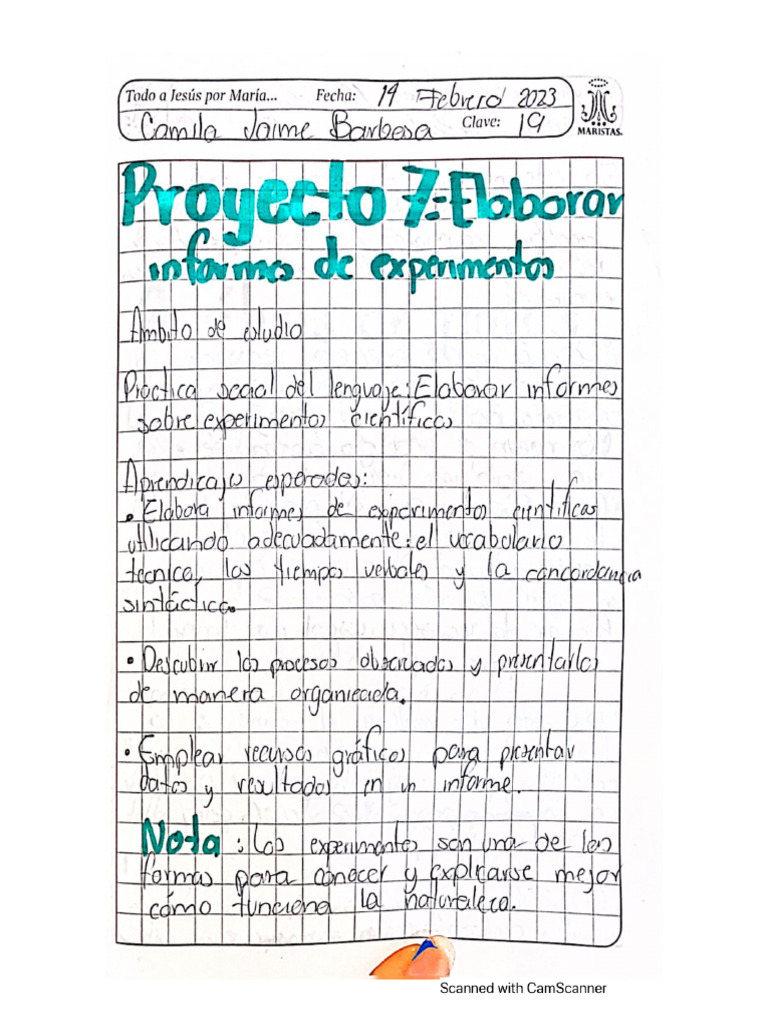 Todo a Jesús por María... Fecha: 14 Febrero 2023
Camila Jaime Barbosa Clave: 19
MARISTAS.
Proyecto 7: Elaborar
informes de experimentos
Ámbito de estudio
Práctica social del lenguaje: Elaborar informes
sobre experimentos científicos
Aprendizajes esperados:
• Elabora informes de experimentos científicas
utilizando adecuadamente: el vocabulario
técnico, los tiempos verbales y la concordancia
sintáctica.
• Descubrir los procesos observados y presentarlos
de manera organizada.
• Emplear recursos gráficos para presentar
datos y resultados en un informe.
Nota: Los experimentos son una de las
formas para conocer y explicarse mejor
cómo funciona la naturaleza.
Scanned with CamScanner